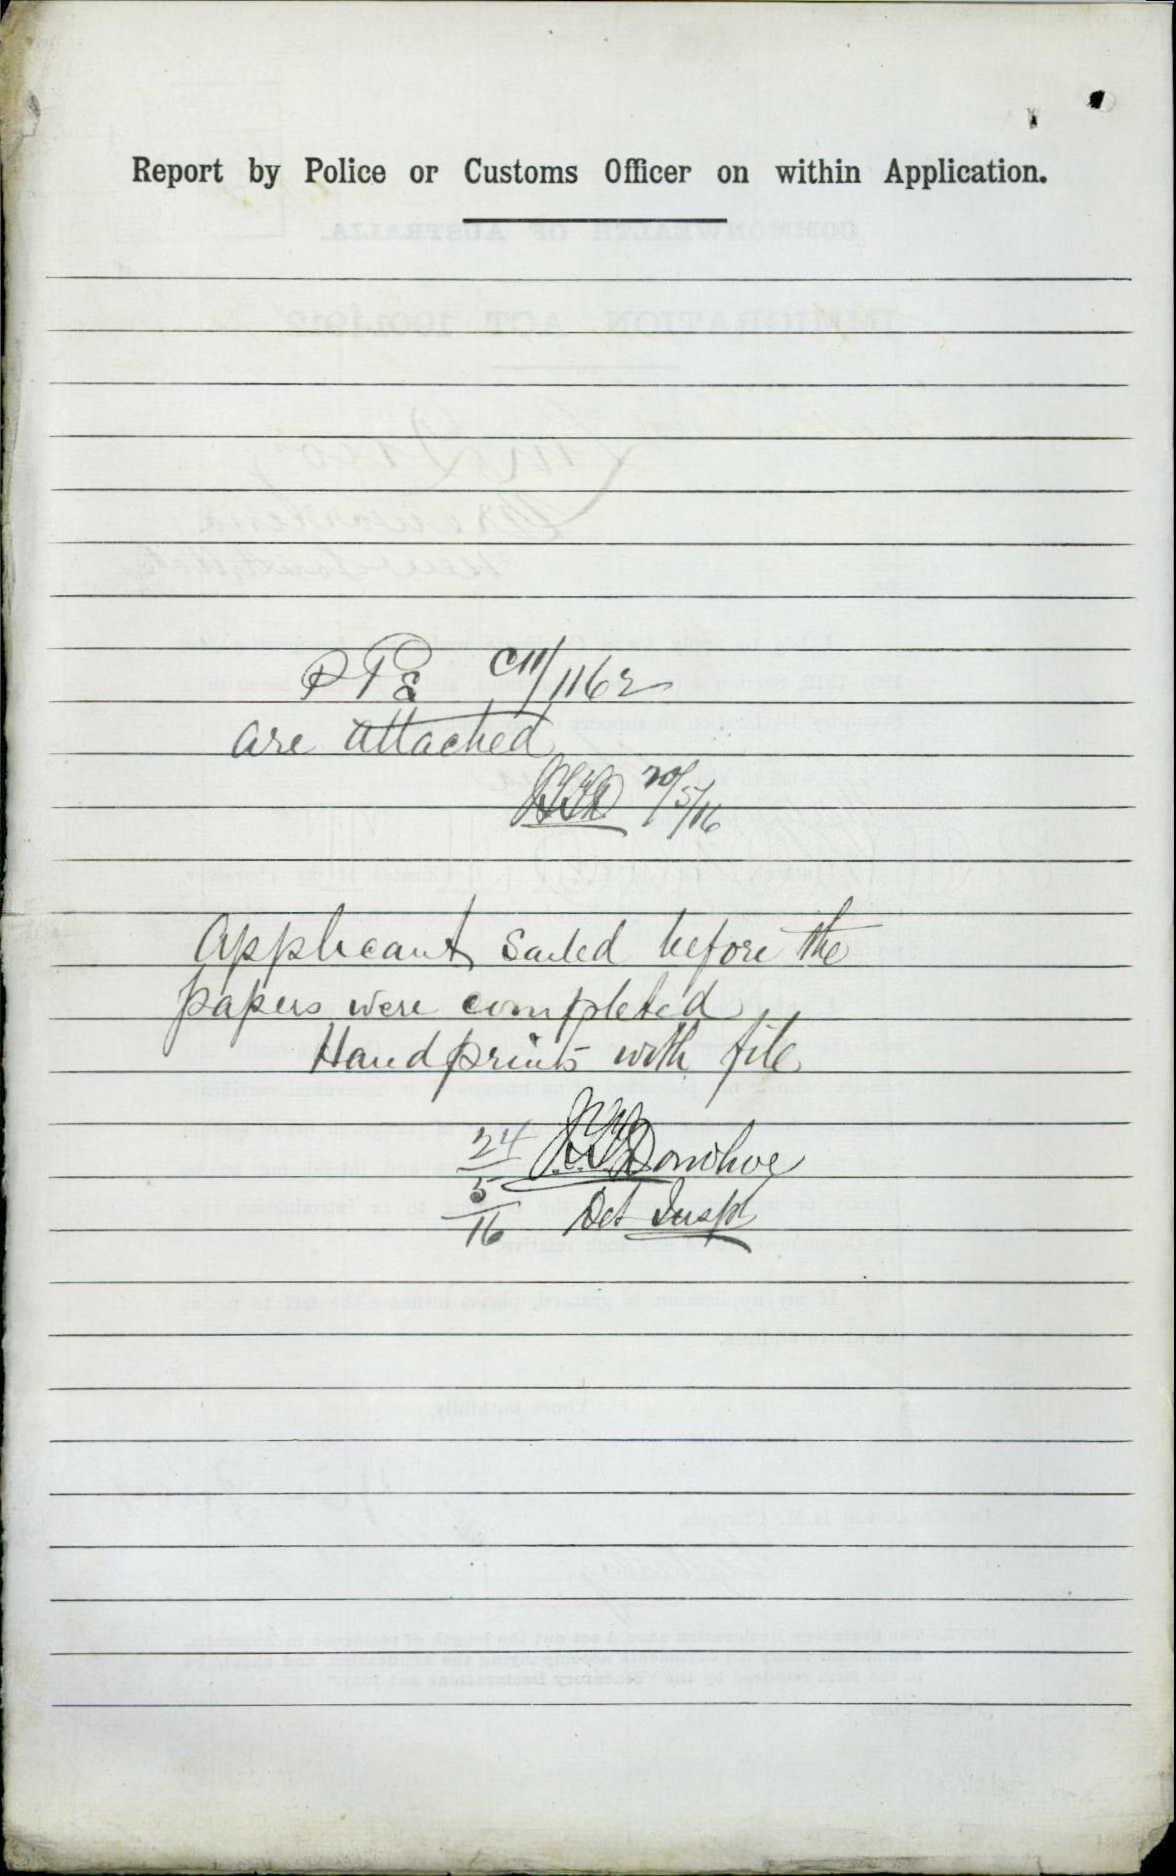 Report by Police or Customs Officer on within Application.
C11/1162
are attached
20/5/16
Applicant sailed before the
papers were completed
Handprints with file
24 Donohoe
5
16 Det Inspr